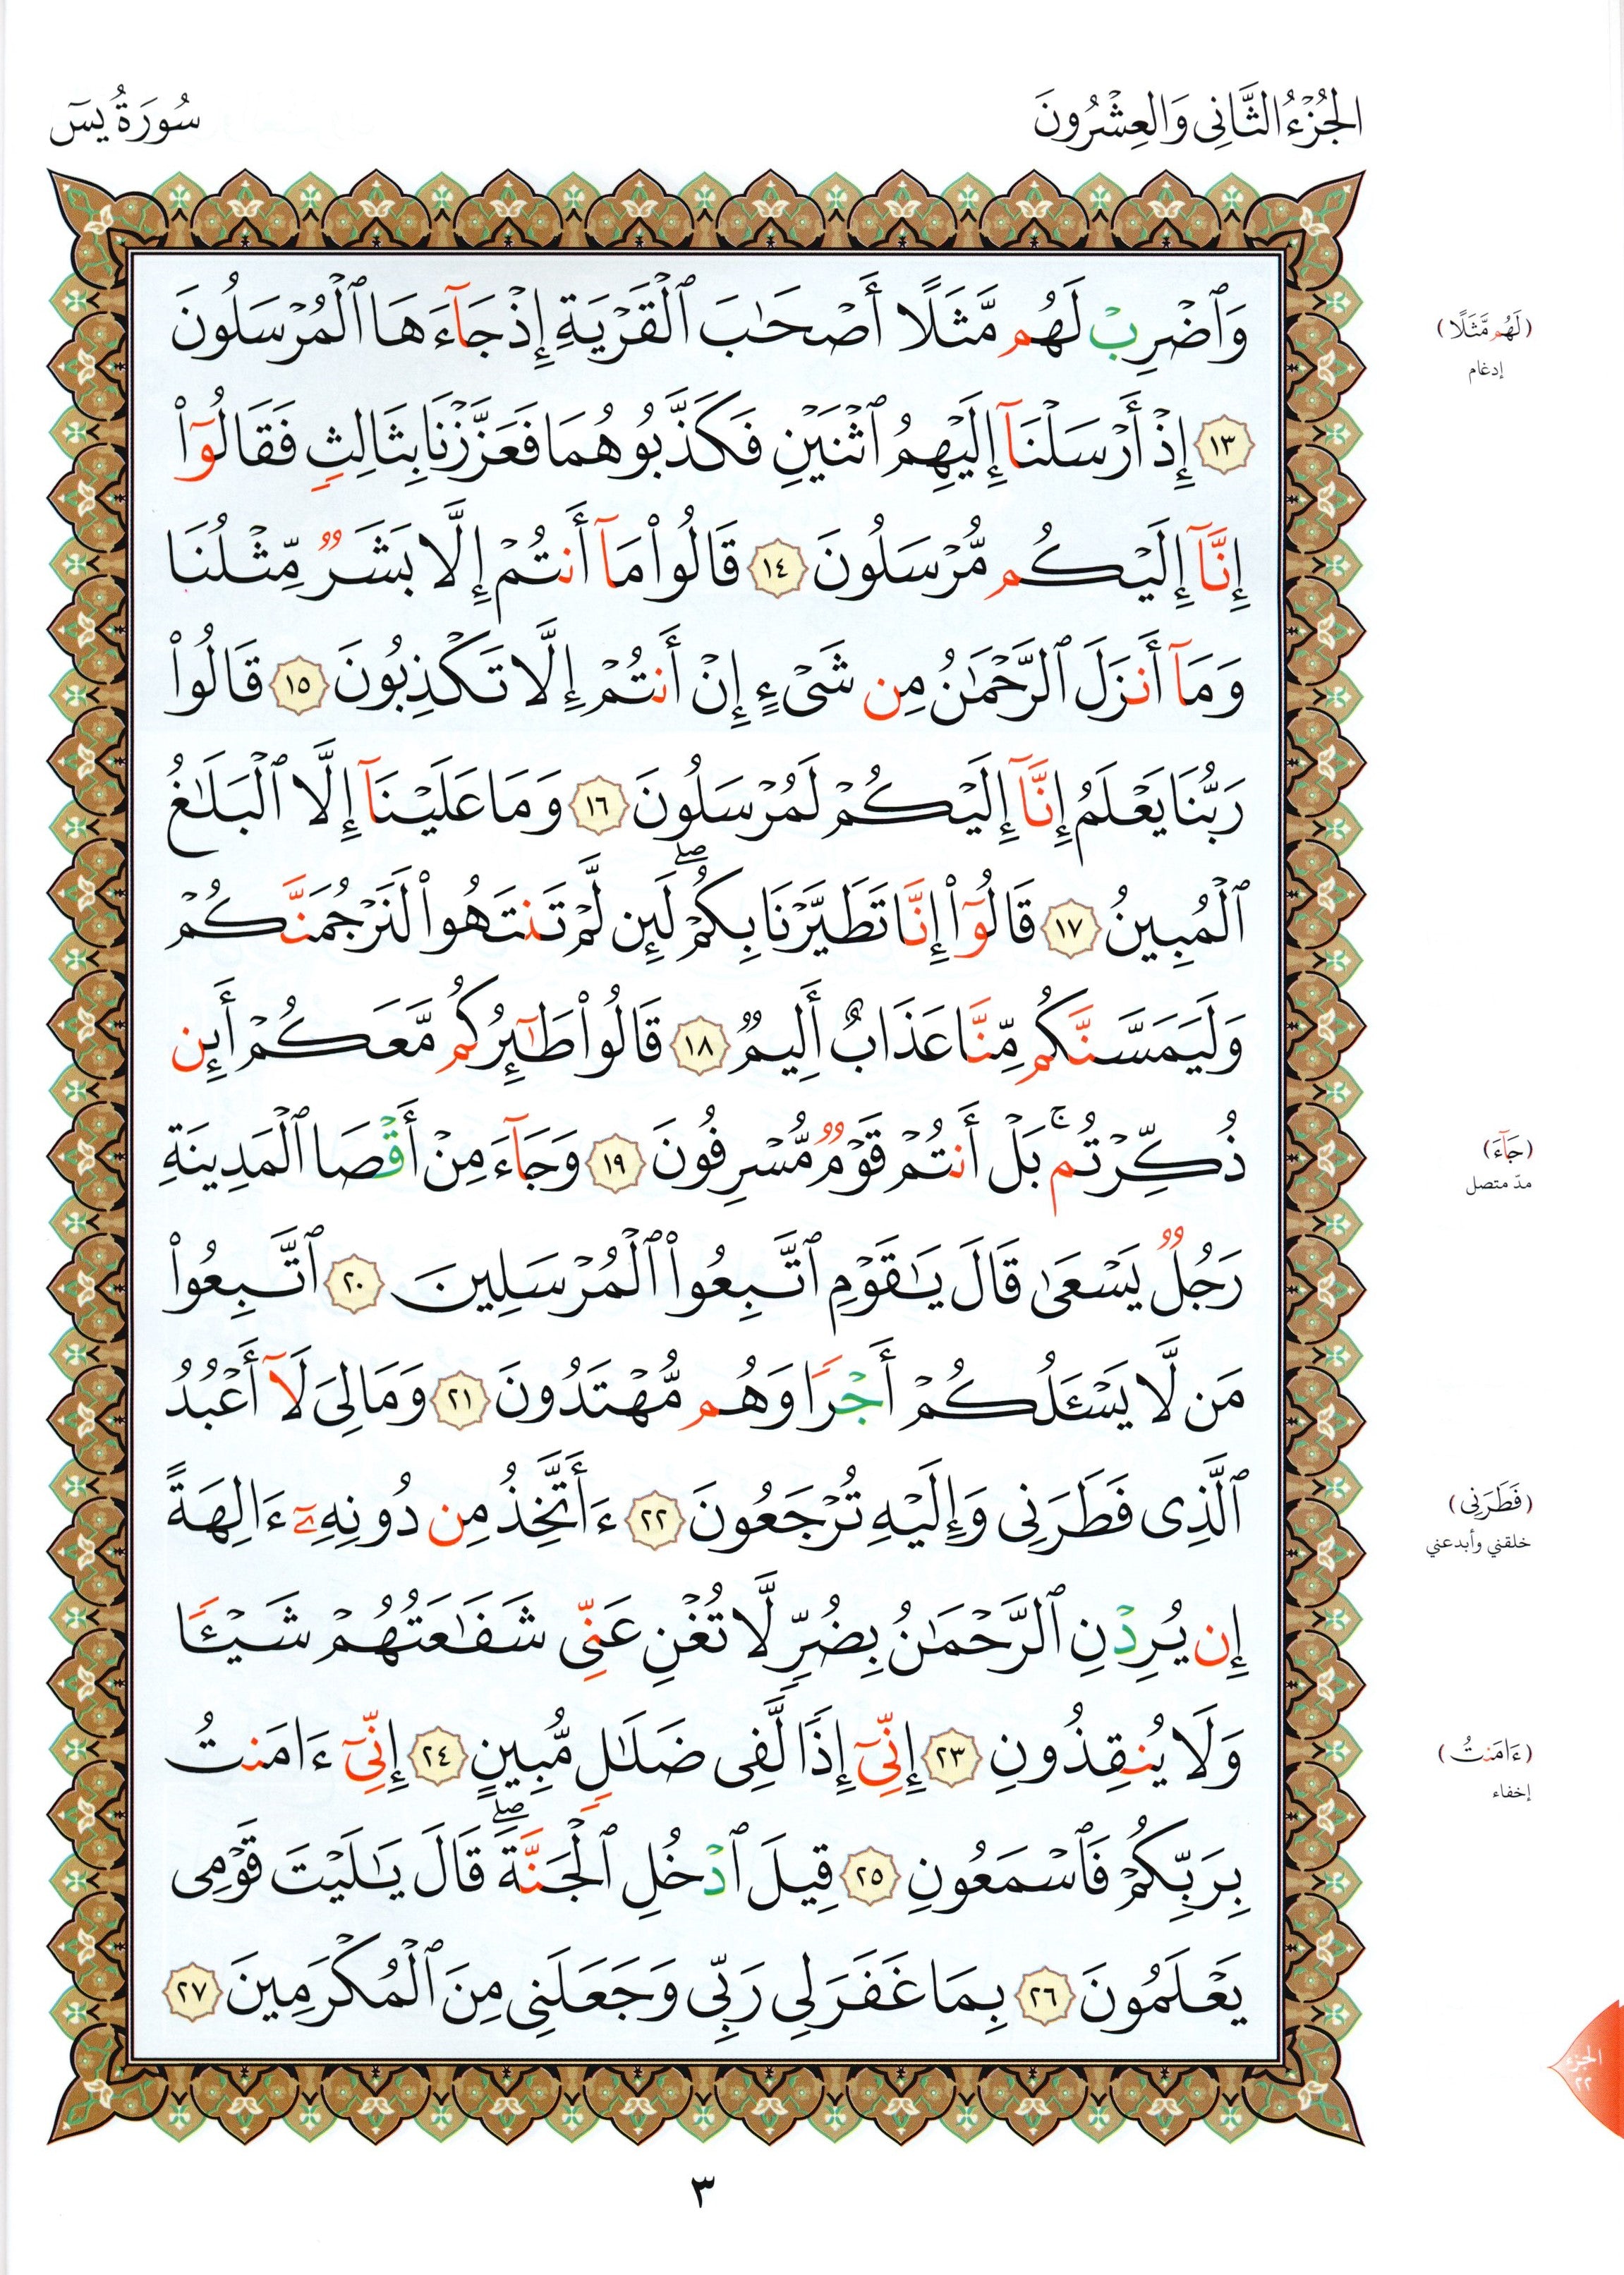 الجُزْءُ الثَّانِي وَالعِشْرُونَ
سُورَةُ يسٓ
وَٱضْرِبْ لَهُم مَّثَلًا أَصْحَٰبَ ٱلْقَرْيَةِ إِذْ جَآءَهَا ٱلْمُرْسَلُونَ
١٣ إِذْ أَرْسَلْنَآ إِلَيْهِمُ ٱثْنَيْنِ فَكَذَّبُوهُمَا فَعَزَّزْنَا بِثَالِثٍ فَقَالُوٓا۟
إِنَّآ إِلَيْكُم مُّرْسَلُونَ ١٤ قَالُوا۟ مَآ أَنتُمْ إِلَّا بَشَرٌ مِّثْلُنَا
وَمَآ أَنزَلَ ٱلرَّحْمَٰنُ مِن شَىْءٍ إِنْ أَنتُمْ إِلَّا تَكْذِبُونَ ١٥ قَالُوا۟
رَبُّنَا يَعْلَمُ إِنَّآ إِلَيْكُمْ لَمُرْسَلُونَ ١٦ وَمَا عَلَيْنَآ إِلَّا ٱلْبَلَٰغُ
ٱلْمُبِينُ ١٧ قَالُوٓا۟ إِنَّا تَطَيَّرْنَا بِكُمْ ۖ لَئِن لَّمْ تَنتَهُوا۟ لَنَرْجُمَنَّكُمْ
وَلَيَمَسَّنَّكُم مِّنَّا عَذَابٌ أَلِيمٌ ١٨ قَالُوا۟ طَٰٓئِرُكُم مَّعَكُمْ أَئِن
ذُكِّرْتُم ۚ بَلْ أَنتُمْ قَوْمٌ مُّسْرِفُونَ ١٩ وَجَآءَ مِنْ أَقْصَا ٱلْمَدِينَةِ
رَجُلٌ يَسْعَىٰ قَالَ يَٰقَوْمِ ٱتَّبِعُوا۟ ٱلْمُرْسَلِينَ ٢٠ ٱتَّبِعُوا۟
مَن لَّا يَسْـَٔلُكُمْ أَجْرًا وَهُم مُّهْتَدُونَ ٢١ وَمَالِىَ لَآ أَعْبُدُ
ٱلَّذِى فَطَرَنِى وَإِلَيْهِ تُرْجَعُونَ ٢٢ ءَأَتَّخِذُ مِن دُونِهِۦٓ ءَالِهَةً
إِن يُرِدْنِ ٱلرَّحْمَٰنُ بِضُرٍّ لَّا تُغْنِ عَنِّى شَفَٰعَتُهُمْ شَيْـًٔا
وَلَا يُنقِذُونِ ٢٣ إِنِّىٓ إِذًا لَّفِى ضَلَٰلٍ مُّبِينٍ ٢٤ إِنِّىٓ ءَامَنتُ
بِرَبِّكُمْ فَٱسْمَعُونِ ٢٥ قِيلَ ٱدْخُلِ ٱلْجَنَّةَ ۖ قَالَ يَٰلَيْتَ قَوْمِى
يَعْلَمُونَ ٢٦ بِمَا غَفَرَ لِى رَبِّى وَجَعَلَنِى مِنَ ٱلْمُكْرَمِينَ ٢٧
(لَهُم مَّثَلًا)
إدغام
(جَآءَ)
مدّ متصل
(فَطَرَنِى)
خلقني وأبدعني
(ءَامَنتُ)
إخفاء
الجزء
٢٢
٣